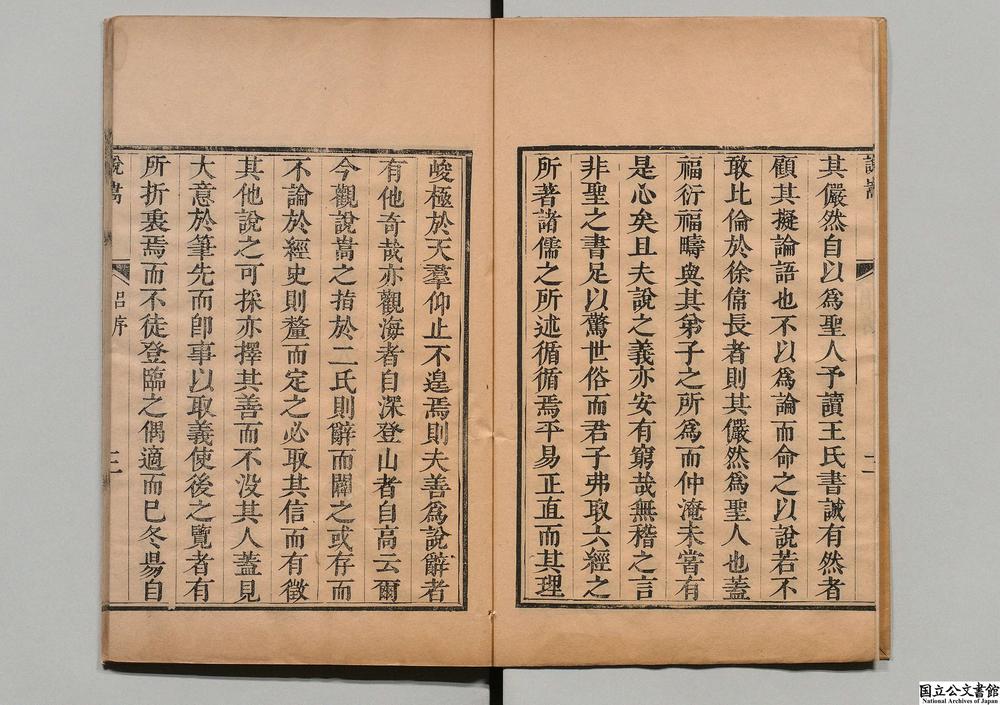 說嵩
二
其儼然自以爲聖人予讀王氏書誠有然者
顧其擬論語也不以爲論而命之以說若不
敢比倫於徐偉長者則其儼然爲聖人也蓋
福衍福疇與其弟子之所爲而仲淹未嘗有
是心矣且夫說之義亦安有窮哉無稽之言
非聖之書足以驚世俗而君子弗取六經之
所著諸儒之所述循循焉平易正直而其理
峻極於天羣仰止不遑焉則夫善爲說辭者
有他奇哉亦觀海者自深登山者自高云爾
今觀說嵩之指於二氏則辭而闢之或存而
不論於經史則釐而定之必取其信而有徵
其他說之可採亦擇其善而不没其人蓋見
大意於筆先而卽事以取義使後之覽者有
所折衷焉而不徒登臨之偶適而已冬昜自
說嵩
呂序
国立公文書館
National Archives of Japan